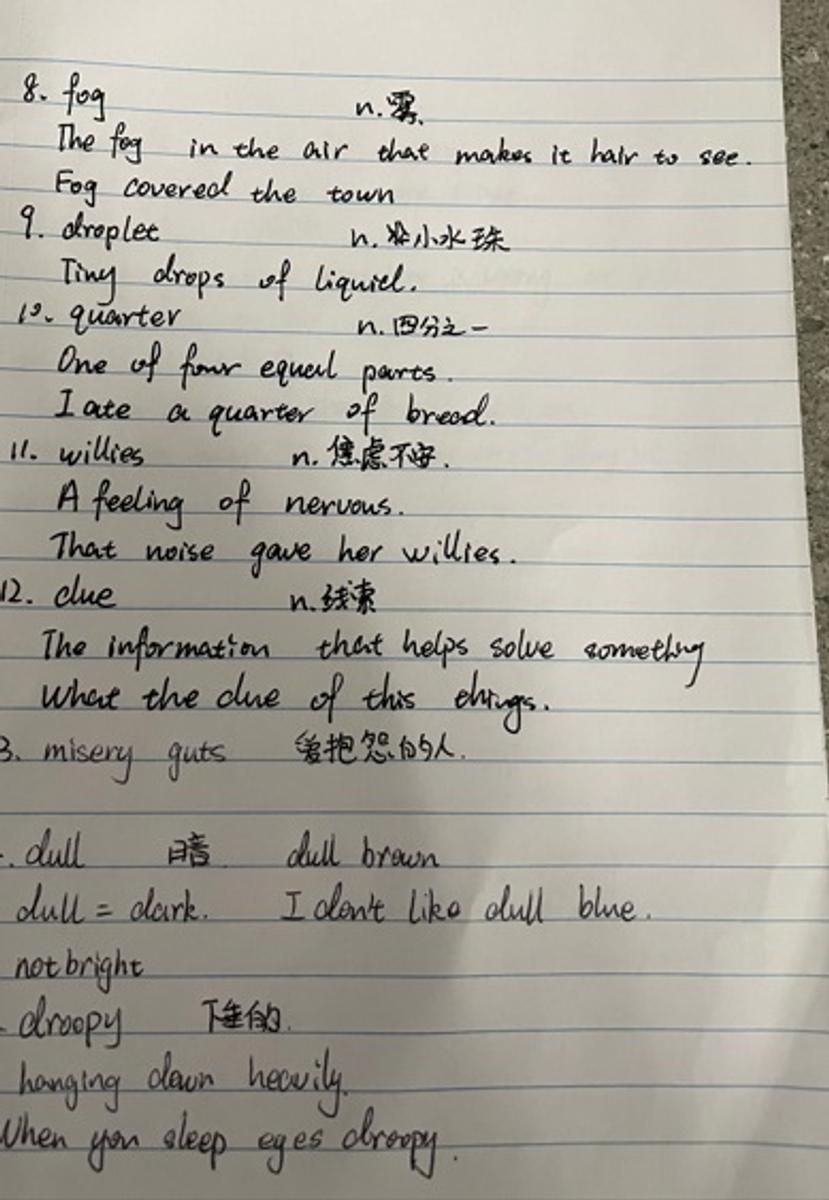 8. fog n. 雾
The fog in the air that makes it hair to see.
Fog covered the town
9. droplet n. 小水珠
Tiny drops of liquid.
10. quarter n. 四分之一
One of four equal parts.
I ate a quarter of bread.
11. willies n. 焦虑不安.
A feeling of nervous.
That noise gave her willies.
12. clue n. 线索
The information that helps solve something
What the clue of this things.
3. misery guts 爱抱怨的人.
. dull 暗 dull brown
dull = dark. I don't like dull blue.
not bright
droopy 下垂的.
hanging down heavily.
When you sleep eyes droopy.